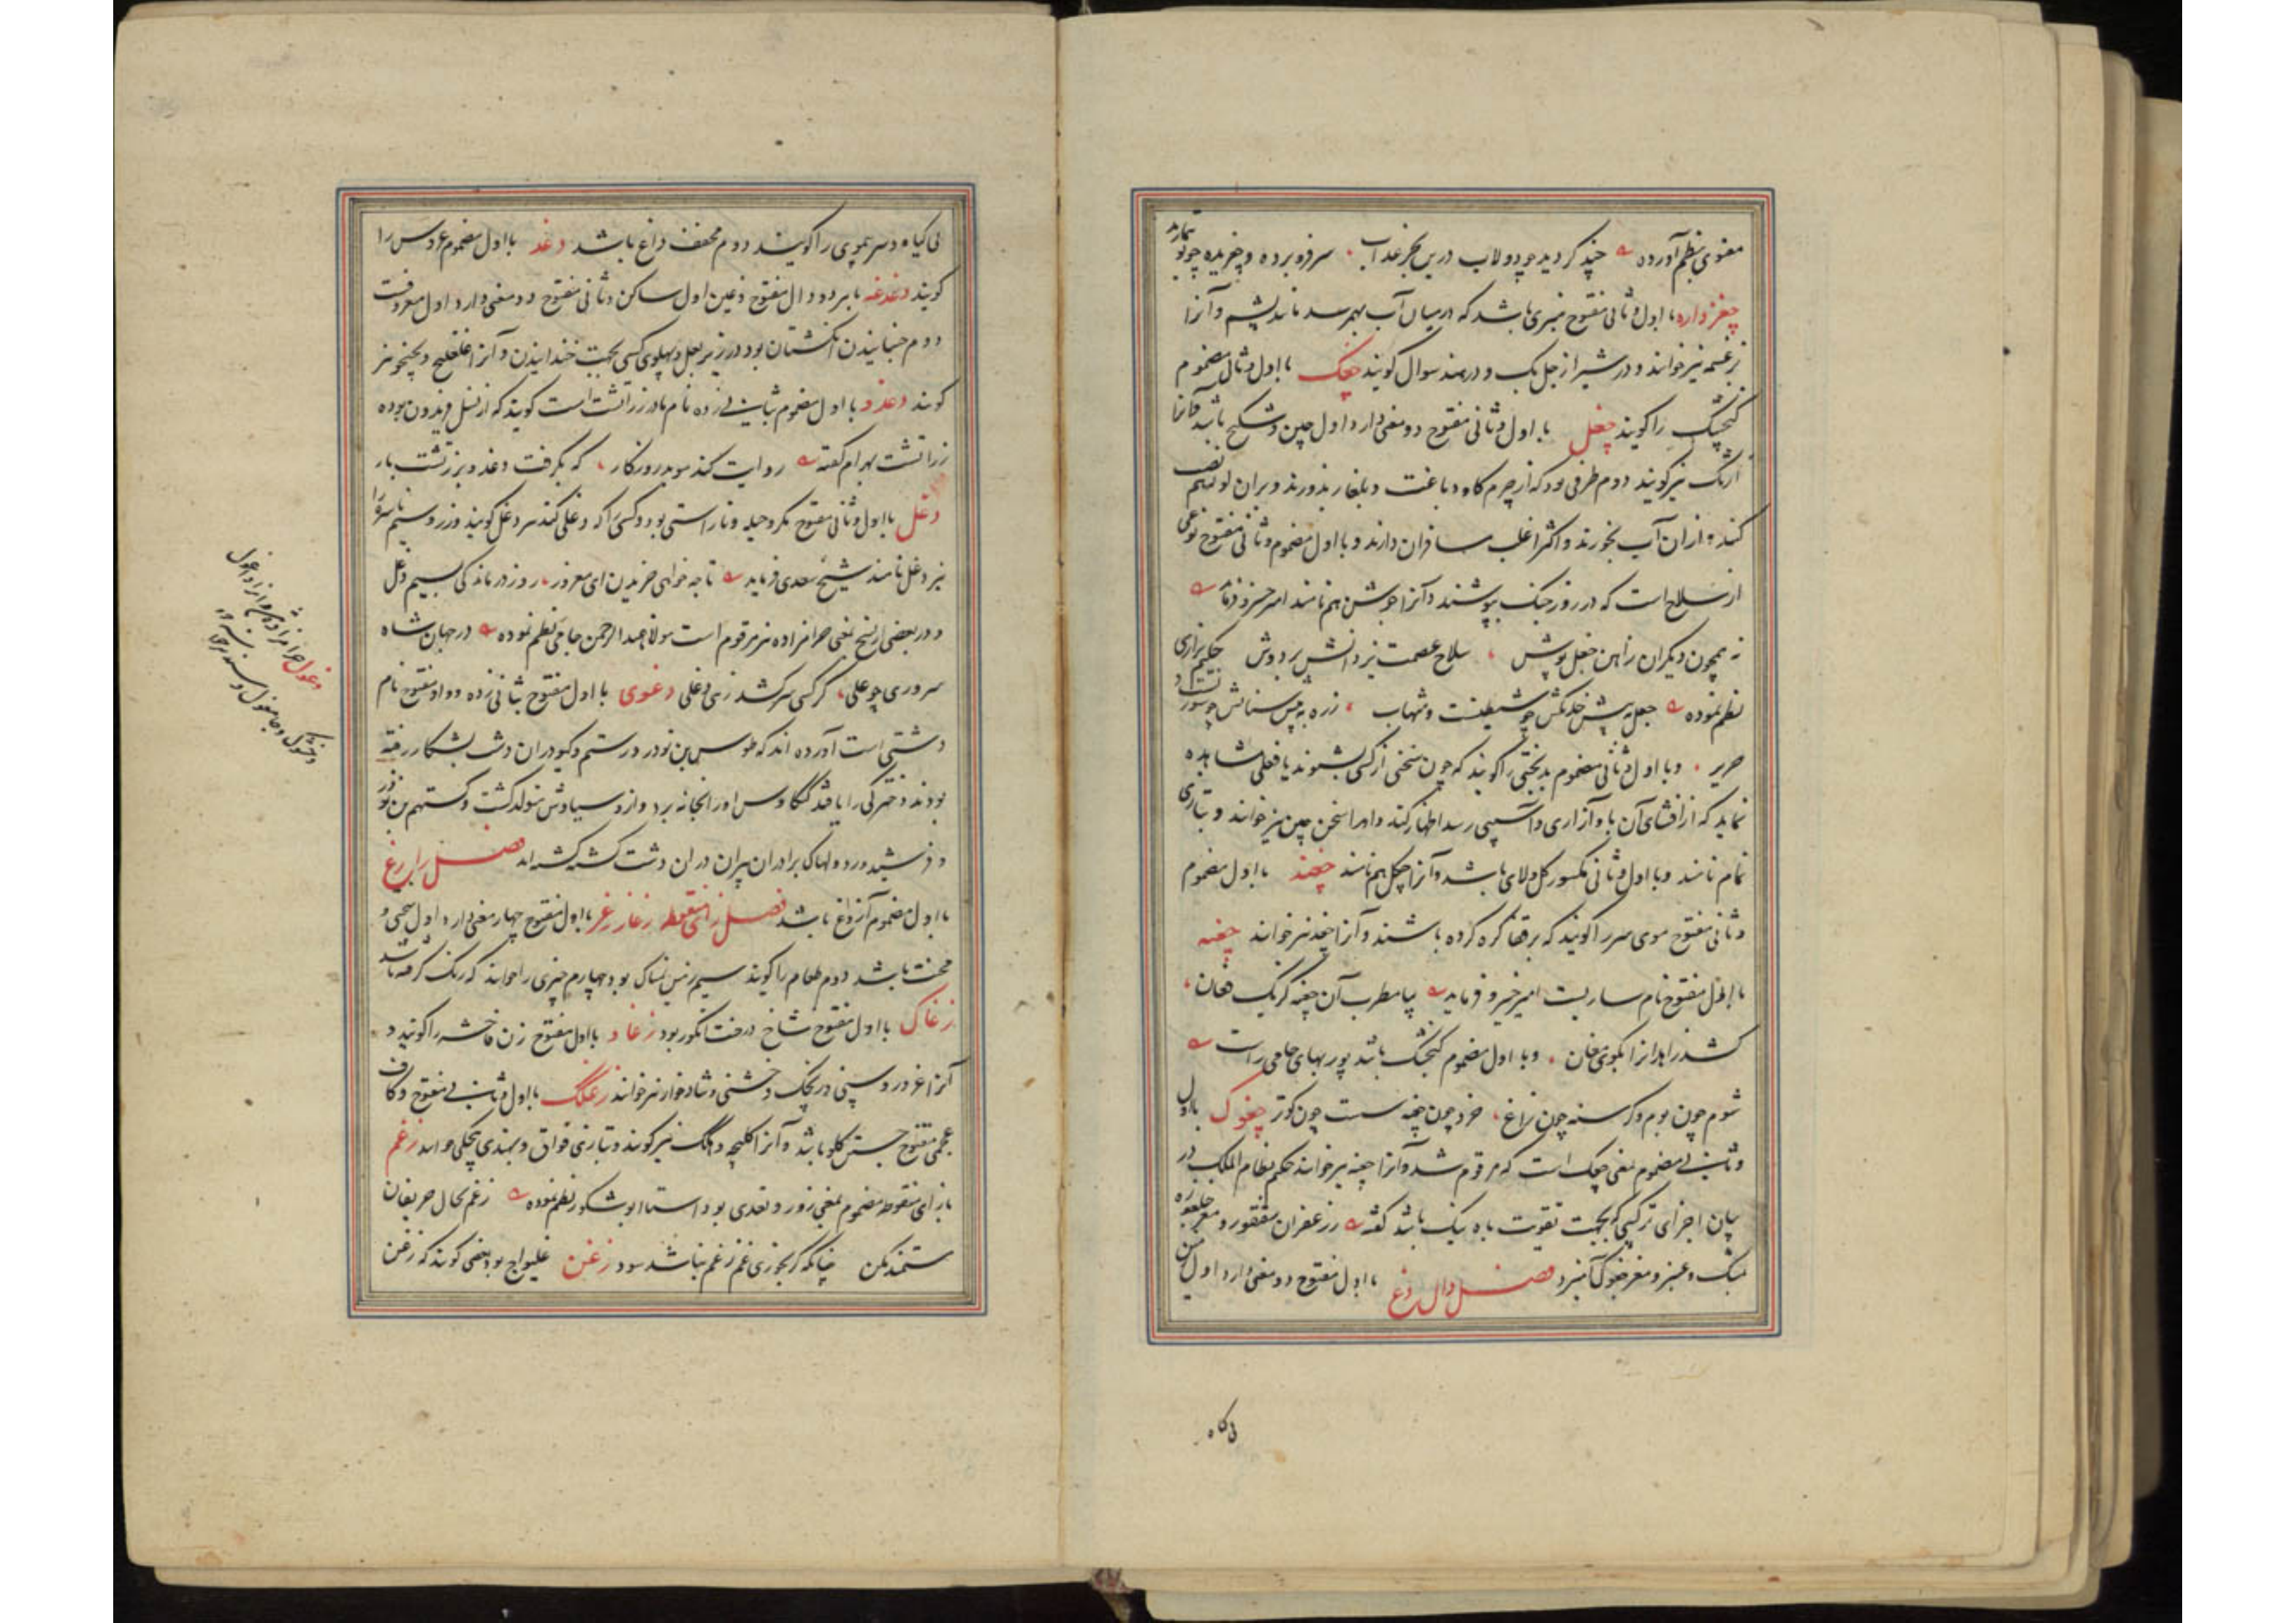 معنوی بنظم آورده چند کردید چو دولاب درین بحر عذاب سر فرو برده و چغزیده چو بوتیمارید
چغزواره با اول و ثانی مفتوح چیزی باشد که در میان آب بهم رسد مانند پشم و آنرا
بزغسمه نیز خوانند و در شیراز جل بک و در هند سوال گویند چغک با اول و ثانی مضموم
گنجشک را گویند چغل با اول و ثانی مفتوح دو معنی دارد اول چین و شکنج باشد و آنرا
ارنگ نیز گویند دوم ظرفی بود که از چرم گاو دباغت و بلغار بدوزند و بران لوله هم نصب
کنند و از ان آب بخورند و اکثر اغلب مسافران دارند و با اول مضموم و ثانی مفتوح نوعی
از سلاح است که در روز جنگ بپوشند و آنرا جوشن هم نامند امیر خسرو فرماید
نه همچون دیگران ز آهن چغل پوش سلاح عصمت یزدانش بر دوش حکیم نزاری
نظم نموده چغل به پیش خدنگش چو شیطنت و شهاب زره به پیش سنانش چو سوزنست و
حریر و با اول و ثانی مضموم بدبختی را گویند که چون سخنی از کسی بشنوند یا فعلی مشاهده
نماید که از افشای آن باو آزاری و آسیبی رسد اظهار کند و او را سخن چین نیز خوانند و بتازی
نمام نامند و با اول و ثانی مکسور گل و لای باشد و آنرا چکل هم نامند چغند با اول مضموم
و ثانی مفتوح موی سر را گویند که بر قفا گره کرده باشند و آنرا چغد نیز خوانند چغنه
با اول مفتوح نام سازیست امیر خسرو فرماید بیا مطرب آن چغنه کز یک فغان
کشد زاهدانرا بکوی مغان و با اول مضموم گنجشک باشد پور بهای جامی راست
شوم چون بوم و گرسنه چون زاغ خرد چون چغنه سست چون کوتر چغوک با اول
و ثانی مضموم بمعنی چغک است که مرقوم شد و آنرا چغنه نیز خوانند حکیم نظام الملک در
بیان اجزای ترکیبی که بجهت تقویت باه نیک باشد گفته ز زعفران سقنقور و مغز جلغوزه
مشک و عنبر و مغز چغوک آمیزد فصل دال دغ با اول مفتوح دو معنی دارد اول زمین
بی گیاه
بی گیاه و سر بی موی را گویند دوم مخفف داغ باشد دغد با اول مضموم عروس را
گویند دغدغه با هر دو دال مفتوح و غین اول ساکن و ثانی مفتوح دو معنی دارد اول معروفست
دوم جنبانیدن انگشتان بود در زیر بغل و پهلوی کسی بجهت خندانیدن و آنرا غلغلیج و پخپخو نیز
گویند دغدو با اول مضموم بثانی زده نام مادر زراتشت است گویند که از نسل فریدون بوده
زراتشت بهرام گفته روایت کند موبد روزگار که بگرفت دغدو بزرتشت بار
دغل با اول و ثانی مفتوح مکر و حیله و ناراستی بود و کسی را که دغلی کند سر دغل گویند و زر و سیم ناسره را
نیز دغل نامند شیخ سعدی فرماید تا چه خواهی خریدن ای مغرور روز درماندگی بسیم دغل
و در بعضی از نسخ بمعنی حرامزاده نیز مرقوم است مولانا عبدالرحمن جامی نظم نموده در جهان شاه
سروری چو علی گر کسی سر کشد زهی دغلی دغوی با اول مفتوح بثانی زده و واو مفتوح نام
دشتی است آورده اند که طوس بن نوذر و رستم و گیو در ان دشت بشکار رفته
بودند دخترکی را یافتند کیکاوس او را بخانه برد و از و سیاوش متولد گشت و گستهم بن نوذر
و فرشیدورد و لهاک برادران پیران در ان دشت کشته گشته اند فصل را رغ
با اول مضموم آروغ باشد فصل زای منقوطه زغار زغر با اول مفتوح چهار معنی دارد اول سختی و
محنت باشد دوم طعام را گویند سیم زمین نمناک بود چهارم چیزی را خوانند که زنگ گرفته باشد
زغاک با اول مفتوح شاخ درخت انگور بود زغاو با اول مفتوح زن فاحشه را گویند و
آنرا غر و روسپی و دریجک و خشنی و شادخوار نیز خوانند زغنگ با اول و ثانی مفتوح و کاف
عجمی مفتوح جستن گلو باشد و آنرا اکلیجه و هکک نیز گویند و بتازی فواق و بهندی هچکی خوانند زغم
با زای منقوطه مضموم بمعنی زور و تعدی بود استاد ابوشکور نظم نموده زغم بحال حریفان
ستمند مکن چنانکه گر بخوری غم زغم نباشد سود زغن غلیواج بود بعضی گویند که زغن
دغول حرامزاده